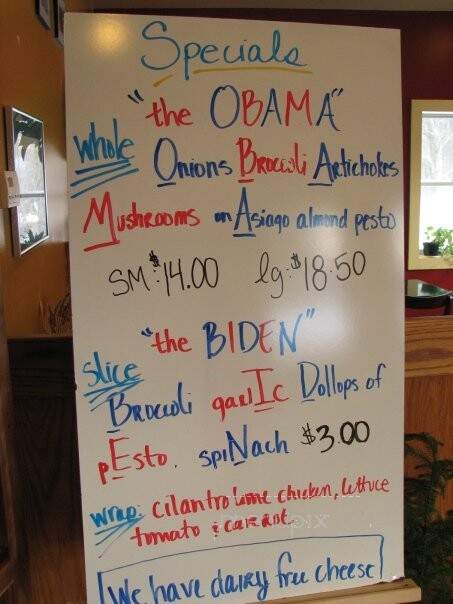 Specials
"the OBAMA"
whole Onions Broccoli Artichokes
Mushrooms on Asiago almond pesto
SM: $14.00 lg: $18.50
"the BIDEN"
slice
Broccoli garlIc Dollops of
pEsto. spiNach $3.00
wrap: cilantro lime chicken, lettuce
tomato & carrot.
We have dairy free cheese